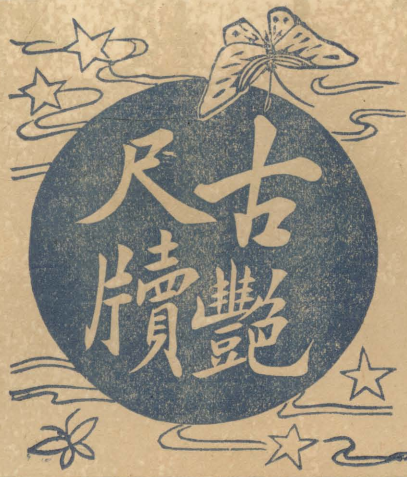 古艷
尺牘